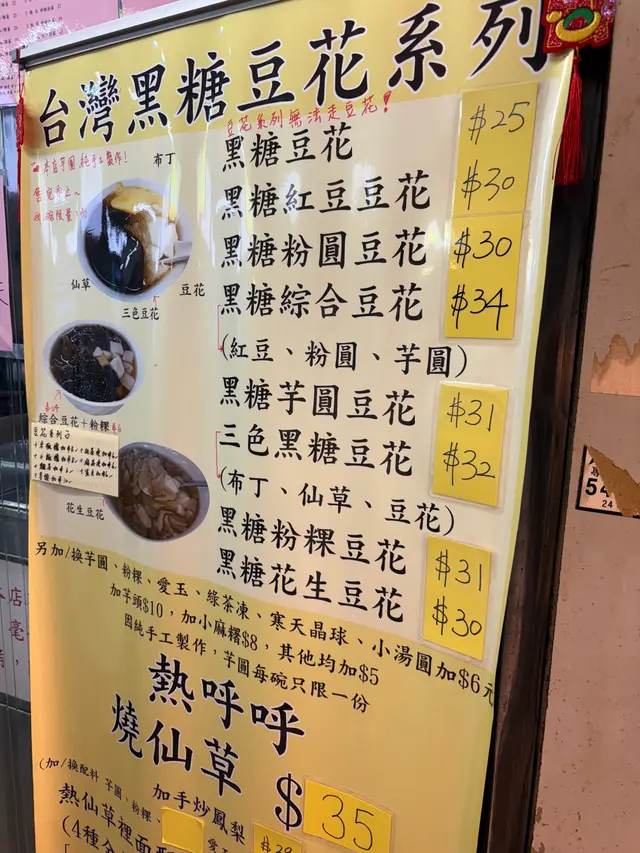 台灣黑糖豆花系列
豆花系列無法走豆花!
本店芋圓純手工製作!
布丁
仙草
豆花
三色豆花
綜合豆花+粉粿
花生豆花
黑糖豆花 $25
黑糖紅豆豆花 $30
黑糖粉圓豆花 $30
黑糖綜合豆花 $34
(紅豆、粉圓、芋圓)
黑糖芋圓豆花 $31
三色黑糖豆花 $32
(布丁、仙草、豆花)
黑糖粉粿豆花 $31
黑糖花生豆花 $30
另加/換芋圓、粉粿、愛玉、綠茶凍、寒天晶球、小湯圓加$6元
加芋頭$10,加小麻糬$8,其他均加$5
因純手工製作,芋圓每碗只限一份
熱呼呼
燒仙草 $35
(加/換配料 芋圓、粉粿、
加手炒鳳梨
熱仙草裡面
(4種